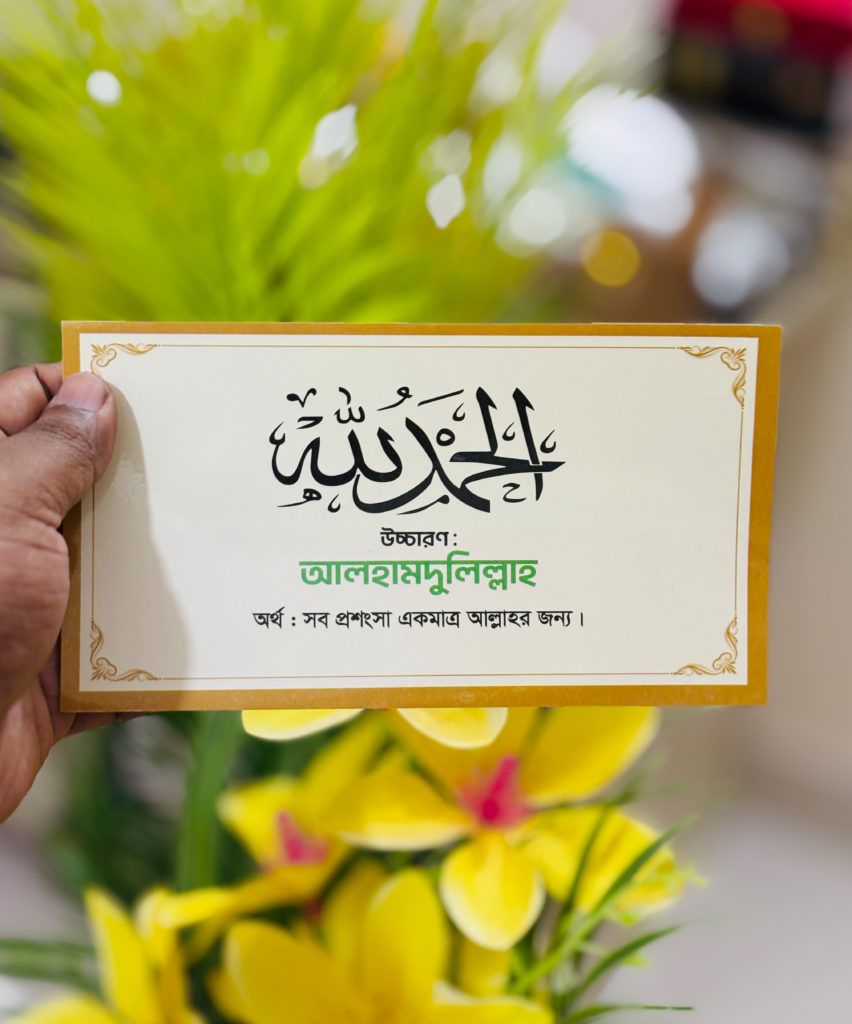 الْحَمْدُ لِلّٰهِ
উচ্চারণ :
আলহামদুলিল্লাহ
অর্থ : সব প্রশংসা একমাত্র আল্লাহর জন্য।